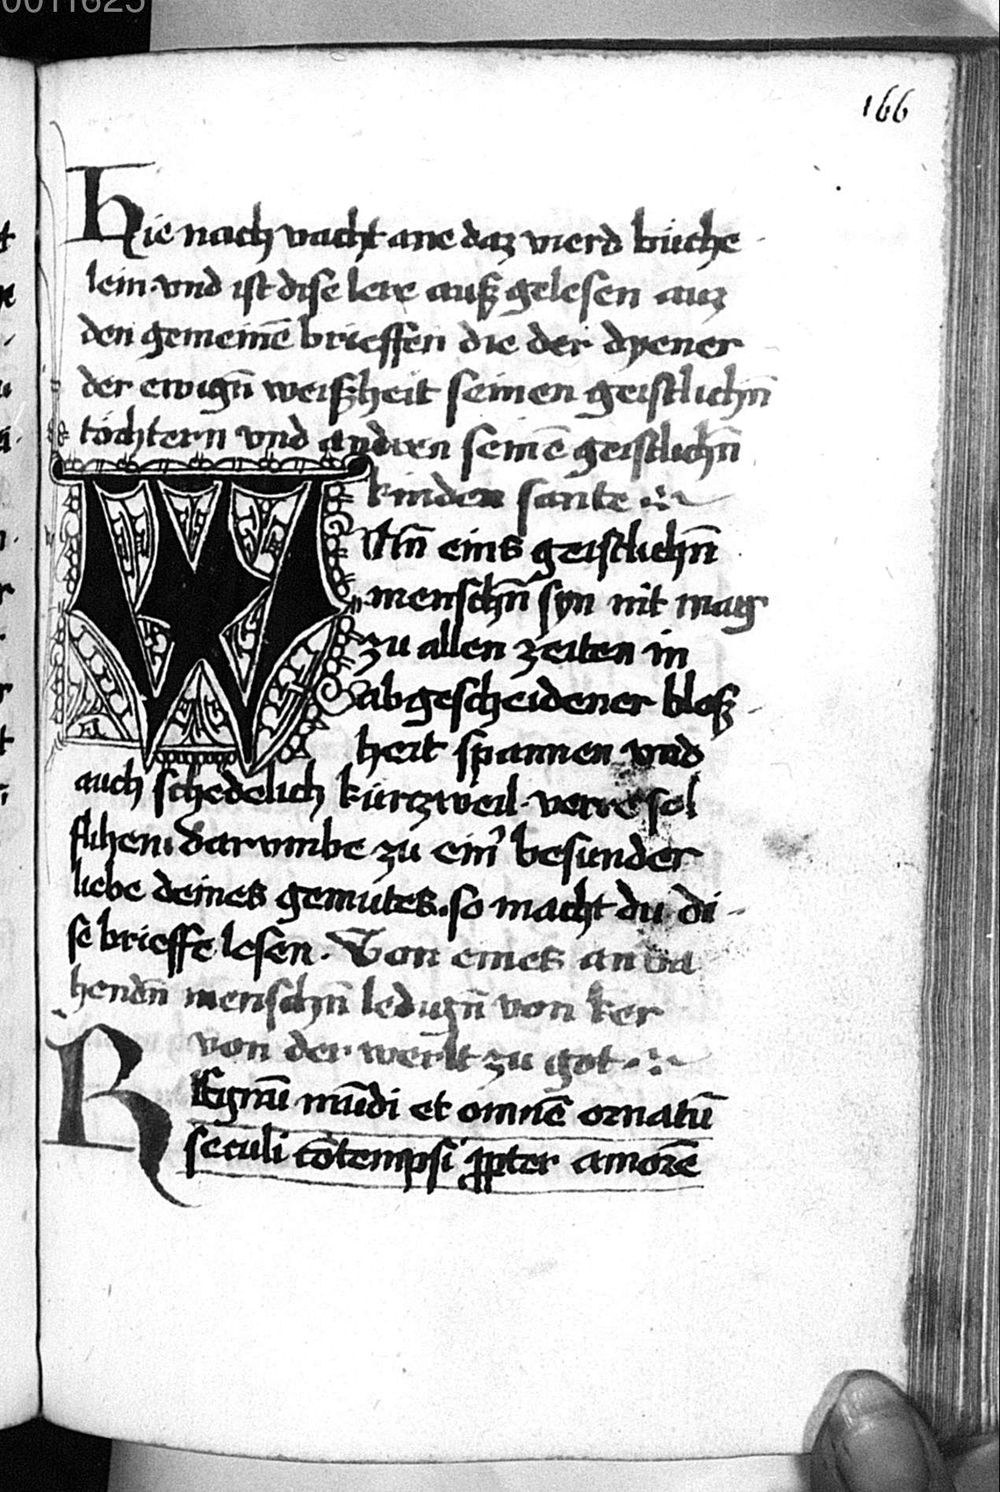 0011625
166
Hie nach vacht ane daz vierd büche
lein. vnd ist dise lere auß gelesen auz
den gemeinē brieffen die der dyener
der ewigñ weißheit seinen geistlichñ
töchtern vnd andren seinē geistlichñ
kinden sante
WAñ eins geistlichñ
menschñ syn nit mag
zu allen zeiten in
abgescheidener bloß
heit spannen vnd
auch schedelich kürtzweil. verre sol
flihen. darvmbe zu ein' besunder
liebe deines gemütes. so macht du di
se brieffe lesen. Von eines an va
hendñ menschñ ledigñ von ker
von der werlt zu got.
REgnū mūdi et omnē ornatū
seculi cōtempsi ꝓpter amorē